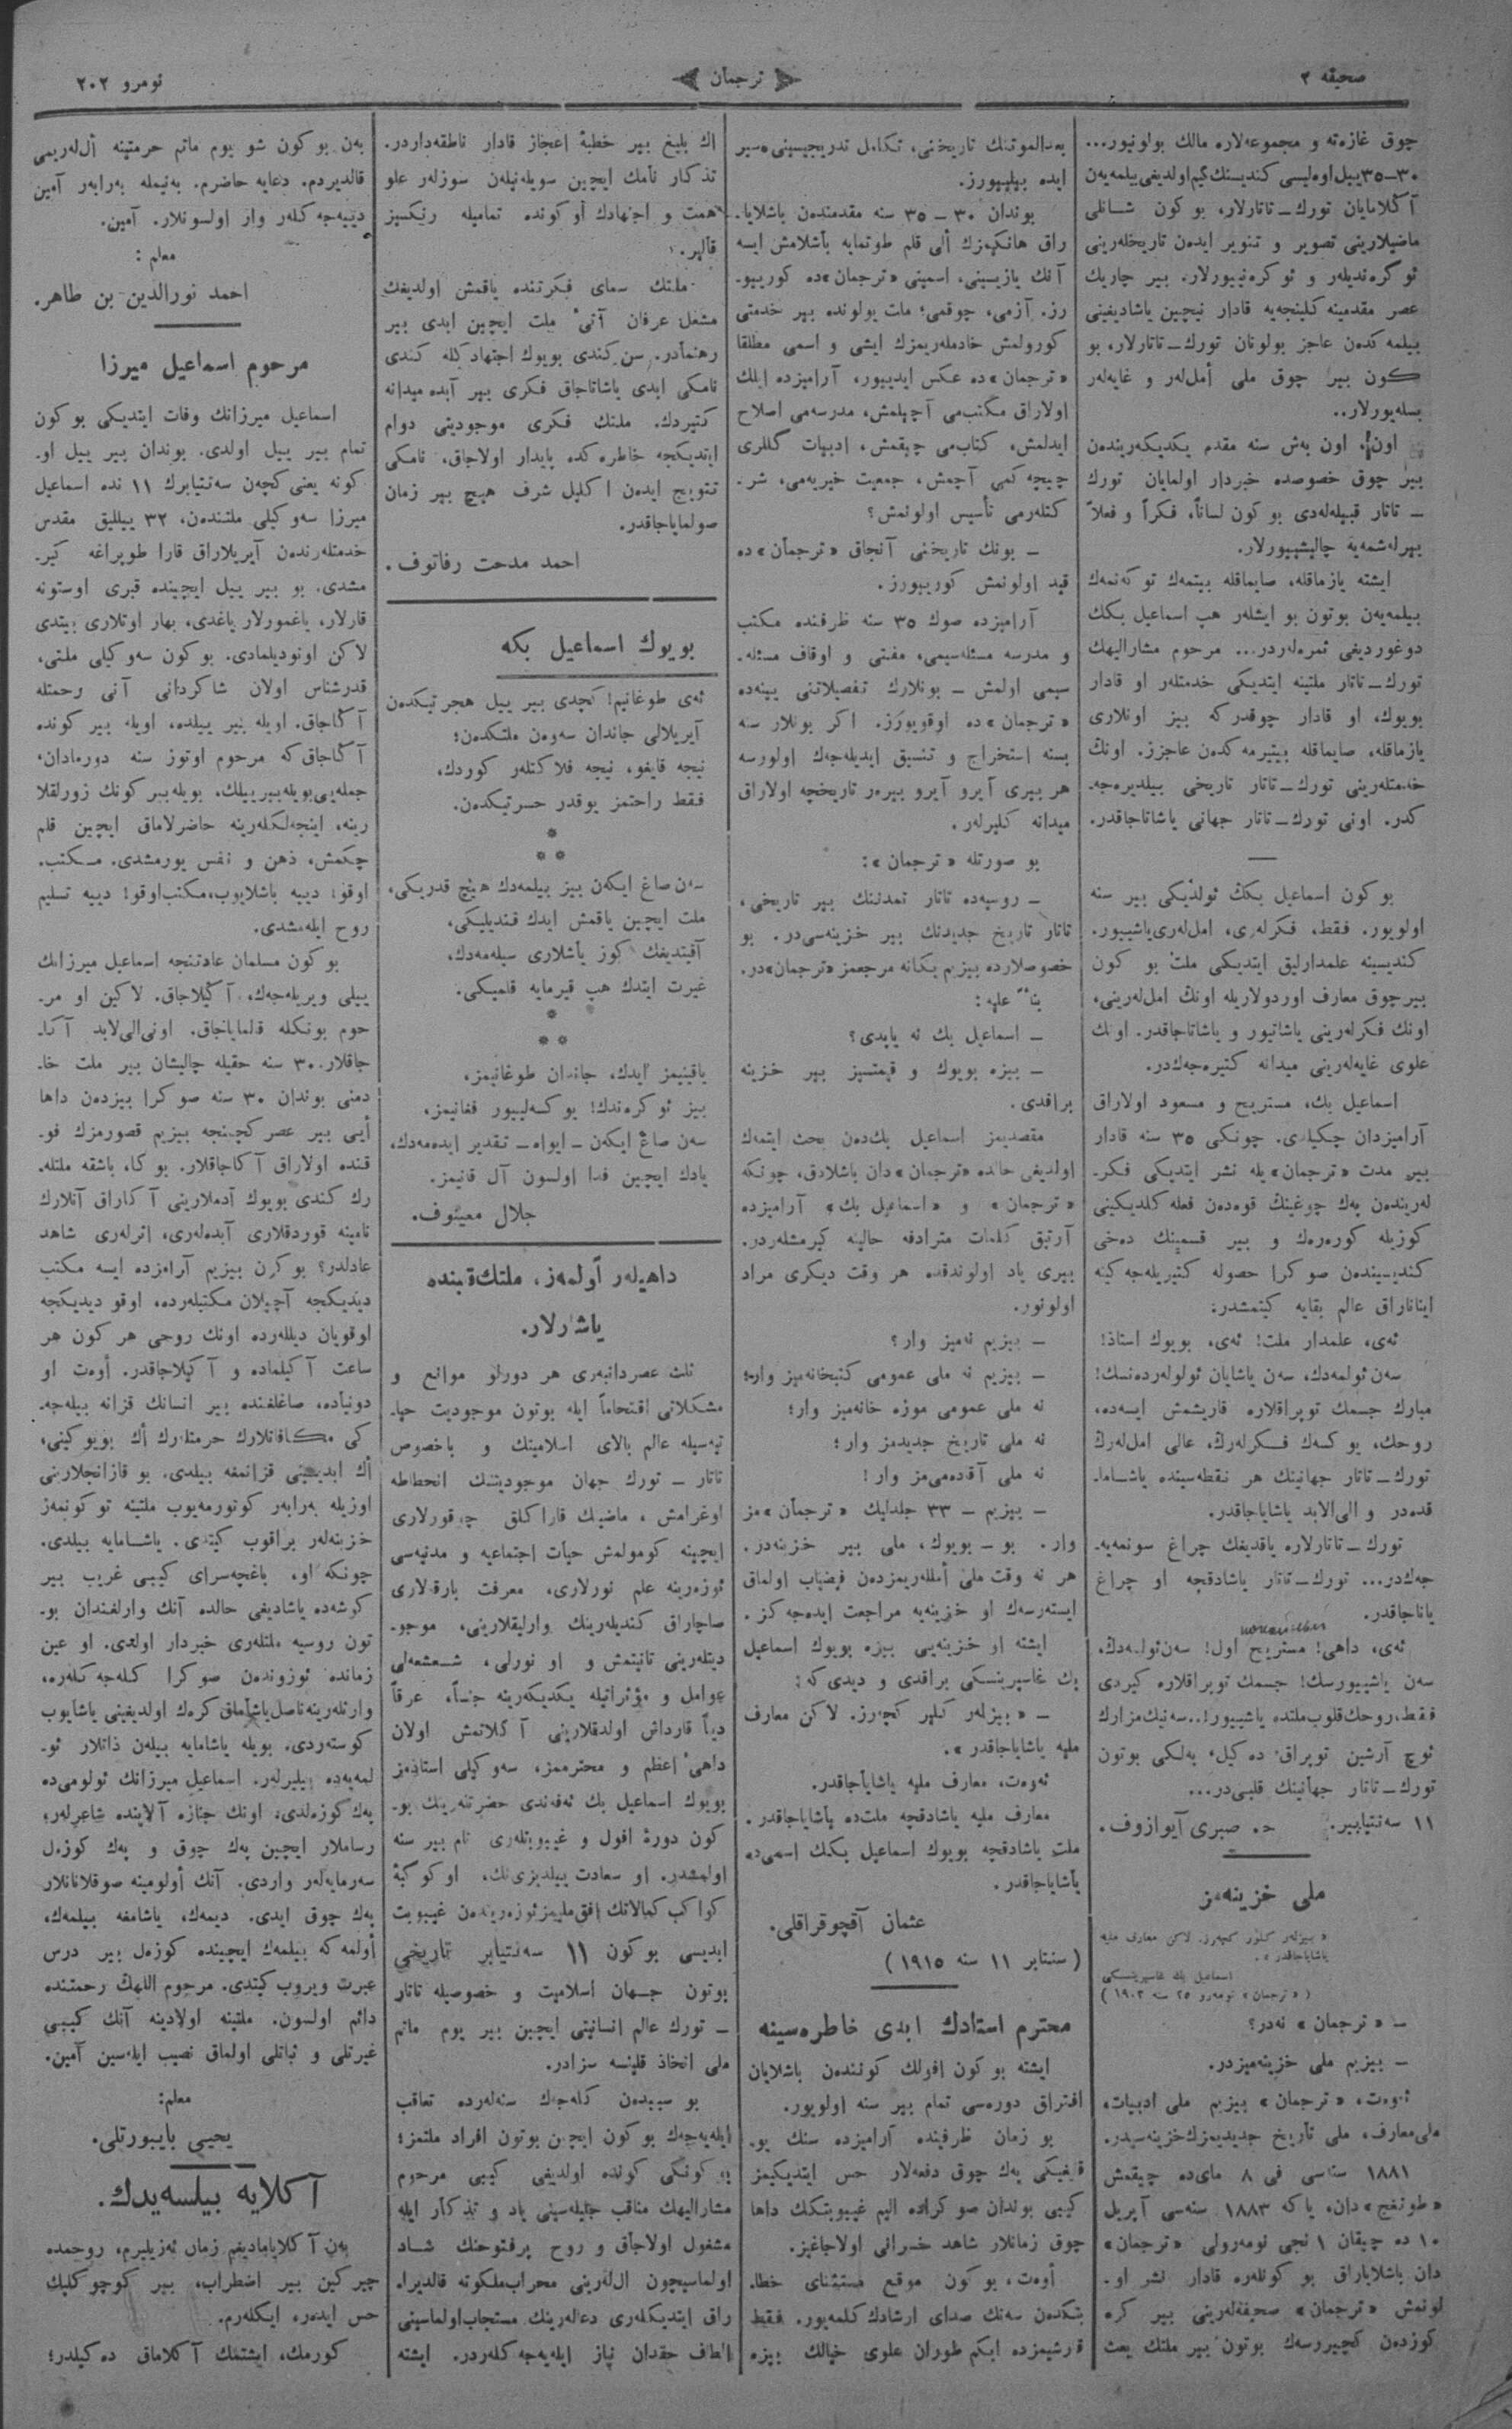 صحیفه ۲
ترجمان
نومرو ۲۰۲
چوق غازه‌ته و مجموعه‌لاره مالك بولونیور...
۳۰–۳۵ ییل اوه‌لیسی كندیسنك كیم اولدیغی بیلمه‌یه‌ن
آڭلامایان تورك–تاتارلار، بو كون شانلی
ماضیلارینی تصویر و تنویر ایده‌ن تاریخله‌رینی
ئوگره‌ندیله‌ر و ئوكره‌نییورلار. بیر چاریك
عصر مقدمینه كلینجه‌یه قادار نیچین یاشادیغینی
بیلمه‌كده‌ن عاجز بولونان تورك–تاتارلار، بو
كون بیر چوق ملی أمل‌لەر و غایه‌له‌ر
بسله‌یورلار..
اون، اون به‌ش سنه مقدم یكدیكه‌رینده‌ن
بیر چوق خصوصده خبردار اولمایان تورك
– تاتار قبیله‌له‌دی بو كون لساناً، فكراً و فعلاً
بیرله‌شمه‌یه چالیشییورلار.
ایشته یازماقله، صایماقله بیتمه‌ك توكه‌نمه‌ك
بیلمه‌یه‌ن بوتون بو ایشله‌ر هپ اسماعیل بكك
دوغوردیغی ثمره‌له‌ردر... مرحوم مشارالیهك
تورك–تاتار ملتینه ایتدیكی خدمتله‌ر او قادار
بویوك، او قادار چوقدركه بیز اونلاری
یازماقله، صایماقله بیتیرمه‌كده‌ن عاجزز. اونڭ
خدمتله‌رینی تورك–تاتار تاریخی بیلدیره‌جه‌
كدر. اونی تورك–تاتار جهانی یاشاتاجاقدر.
بو كون اسماعیل بكڭ ئولدیكی بیر سنه
اولویور. فقط، فكرله‌ری، امل‌له‌ری یاشییور.
كندیسینه علمدارلیق ایتدیكی ملت بو كون
بیرچوق معارف اوردولاریله اونڭ امل‌له‌رینی،
اونك فكرله‌رینی یاشاتیور و یاشاتاجاقدر. اونك
علوی غایه‌له‌رینی میدانه كتیره‌جه‌كدر.
اسماعیل بك، مستریح و مسعود اولاراق
آرامیزدان چكیلدی. چونكی ۳۵ سنه قادار
بیر مدت «ترجمان» یله نشر ایتدیكی فكر-
له‌رینده‌ن په‌ك چوغینڭ قوه‌ده‌ن فعله كلدیكینی
كوزیله كوره‌ره‌ك و بیر قسمینك ده‌خی
كندیسینده‌ن صوكرا حصوله كتیریله‌جه‌كینه
ایناناراق عالم بقایه كیتمشدر.
ئه‌ی، علمدار ملت! ئه‌ی، بویوك استاذ!
سه‌ن ئولمه‌دك، سه‌ن یاشایان ئولولەرده‌نسك!
مبارك جسمك توپراقلاره قاریشمش ایسه‌ده،
روحك، یوكسه‌ك فكرله‌رڭ، عالی امل‌له‌رڭ
تورك–تاتار جهانینك هر نقطه‌سینده یاشاما-
قده‌در و الی‌الابد یاشایاجاقدر.
تورك–تاتارلاره یاقدیغك چراغ سونمه‌یه-
جه‌كدر... تورك–تاتار یاشادقچه او چراغ
یاناجاقدر.
ئه‌ی، داهی! مستریح اول! سه‌ن ئولمه‌دڭ،
سه‌ن یاشییورسك! جسمك توپراقلاره كیردی
فقط، روحك قلوب ملتده یاشییور!.. سه‌نیك مزارك
ئوچ آرشین توپراق ده‌كیل، به‌لكی بوتون
تورك–تاتار جهانینك قلبی‌در...
۱۱ سه‌نتیابر. ح. صبری آیوازوف.
ملی خزینه‌مز
«بیزله‌ر كلور كچه‌رز. لاكن معارف ملیه
یاشایاجاقدر».
اسماعیل بك غاسپرینسكی
(«ترجمان» نومه‌رو ۲۵ سنه ۱۹۰۳)
– «ترجمان» نه‌در؟
– بیزیم ملی خزینه‌میزدر.
ئه‌وه‌ت، «ترجمان» بیزیم ملی ادبیات،
ملی معارف، ملی تاریخ جدیدیمزك خزینه‌سیدر.
۱۸۸۱ سنه‌سی فی ۸ مای‌ده چیقمش
«طونغچ» دان، یاكه ۱۸۸۳ سنه‌سی آپریل
۱۰ ده چیقان ۱ نجی نومه‌رولی «ترجمان»
دان باشلایاراق بو كونله‌ره قادار نشر او-
لونمش «ترجمان» صحیفه‌له‌رینی بیر كره
كوزدن كچیررسه‌ك بوتون بیر ملتك بعث
بعدالموتنك تاریخنی، تكامل تدریجیسینی سیر
ایده بیلییورز.
بوندان ۳۰ – ۳۵ سنه مقدمنده‌ن باشلایا-
راق هانكیمزك ألی قلم طوتمایه باشلامش ایسه
آنك یازیسینی، اسمینی «ترجمان» ده كورییو-
رز. آزمی، چوقمی؛ ملت یولونده بیر خدمتی
كورولمش خادمله‌ریمزك ایشی و اسمی مطلقا
«ترجمان» ده عكس ایدییور، آرامیزده ایلك
اولاراق مكتب‌می آچیلمش، مدرسه‌می اصلاح
ایدلمش، كتاب‌می چیقمش، ادبیات گللری
چیچه‌كمی آچمش، جمعیت خیریه‌می، شر-
كتله‌رمی تأسیس اولونمش؟
– بونك تاریخنی آنجاق «ترجمان» ده
قید اولونمش كوریبورز.
آرامیزده صوك ۳۵ سنه ظرفنده مكتب
و مدرسه مسئله‌سیمی، مفتی و اوقاف مسئله-
سیمی اولمش – بونلارك تفصیلاتنی یینه‌ده
«ترجمان» ده اوقویورز. اكر بونلار سنه
بسنه استخراج و تنسیق ایدیله‌جه‌ك اولورسه
هر بیری آیرو آیرو بیره‌ر تاریخچه اولاراق
میدانه كلیرله‌ر.
بو صورتله «ترجمان»:
– روسیه‌ده تاتار تمدننك بیر تاریخی،
تاتار تاریخ جدیدنك بیر خزینه‌سی‌در. بو
خصوصلارده بیزیم یكانه مرجعمز «ترجمان» در.
بناءً علیه:
– اسماعیل بك نه یاپدی؟
– بیزه بویوك و قیمتسیز بیر خزینه
براقدی.
مقصدیمز اسماعیل بك‌ده‌ن بحث ایتمه‌ك
اولدیغی حالده «ترجمان» دان باشلادق، چونكه
«ترجمان» و «اسماعیل بك» آرامیزده
آرتیق كلمات مترادفه حالینه كیرمشله‌ردر.
بیری یاد اولوندقده هر وقت دیكری مراد
اولونور.
– بیزیم نه‌میز وار؟
– بیزیم نه ملی عمومی كتبخانه‌میز وار؛
نه ملی عمومی موزه خانه‌میز وار؛
نه ملی تاریخ جدیدمز وار؛
نه ملی آقاده‌می‌مز وار!
– بیزیم – ۳۳ جلدلیك «ترجمان» مز
وار. بو – بویوك، ملی بیر خزینه‌در.
هر نه وقت ملی أمللەریمزده‌ن فیضیاب اولماق
ایسته‌رسه‌ك او خزینه‌یه مراجعت ایده‌جه‌كز.
ایشته او خزینه‌یی بیزه بویوك اسماعیل
بك غاسپرینسكی براقدی و دیدی كه:
– «بیزله‌ر كلیر كچرز. لاكن معارف
ملیه یاشایاجاقدر».
ئه‌وه‌ت، معارف ملیه یاشایاجاقدر.
معارف ملیه یاشادقچه ملت‌ده یاشایاجاقدر.
ملت یاشادقچه بویوك اسماعیل بكك اسمی‌ده
یاشایاجاقدر.
عثمان آقچوقراقلی.
(سنتابر ۱۱ سنه ۱۹۱۵)
محترم استادك ابدی خاطره‌سینه
ایشته بو كون افولك كوننده‌ن باشلایان
افتراق دوره‌سی تمام بیر سنه اولویور.
بو زمان ظرفینده آرامیزده سنك یو-
قلیغیكی په‌ك چوق دفعه‌لار حس ایتدیكیمز
كیبی بوندان صوكراده الیم غیبوبتكك داها
چوق زمانلار شاهد خسرانی اولاجاغیز.
أوه‌ت، بو كون موقع مستثنای خطا-
بتكده‌ن سه‌نك صدای ارشادك كلمه‌یور. فقط
قرشیمزده ایكم طوران علوی خیالك بیزه
اك بلیغ بیر خطبهٔ اعجاز قادار ناطقه‌داردر.
تذكار نامك ایچین سویله‌نیله‌ن سوزله‌ر علو
همت و اجتهادك اوكونده تمامیله رنكسیز
قالیر.
ملتك سمای فكرتنده یاقمش اولدیغك
مشعل عرفان آتیٔ ملت ایچین ابدی بیر
رهنمادر. سن كندی بویوك اجتهادكله كندی
نامكی ابدی یاشاتاجاق فكری بیر آبده میدانه
كتیردك. ملتك فكری موجودیتی دوام
ایتدیكجه خاطره‌كده پایدار اولاجاق، نامكی
تتویج ایده‌ن اكلیل شرف هیچ بیر زمان
صولمایاجاقدر.
احمد مدحت رفاتوف.
بویوك اسماعیل بكه
ئه‌ی طوغانیم! كچدی بیر ییل هجرتیكده‌ن
آیریلالی جاندان سه‌وه‌ن ملتكده‌ن؛
نیجه قایغو، نیجه فلاكتلەر كوردك،
فقط راحتمز یوقدر حسرتیكده‌ن.
*
* *
سه‌ن صاغ ایكه‌ن بیز بیلمه‌دك هیچ قدریكی،
ملت ایچین یاقمش ایدك قندیلیكی،
آقیتدیغك كوز یاشلاری سیله‌مه‌دك،
غیرت ایتدك هپ قیرمایه قلمیكی.
*
* *
یاقینیمز ایدك، جاندان طوغانیمز،
بیز ئوكره‌ندك! یوكسه‌لییور فغانیمز،
سه‌ن صاغ ایكه‌ن – ایواه – تقدیر ایده‌مه‌دك،
یادك ایچین فدا اولسون آل قانیمز.
جلال معینوف.
داهیله‌ر أولمه‌ز، ملتك قلبنده
یاشارلار.
ثلث عصردانبه‌ری هر دورلو موانع و
مشكلاتی اقتحاماً ایله بوتون موجودیت حیا-
تیه‌سیله عالم بالای اسلامیتك و باخصوص
تاتار – تورك جهان موجودیتنك انحطاطه
اوغرامش، ماضینك قاراكلق چوقورلاری
ایچینه كومولمش حیات اجتماعیه و مدنیه‌سی
ئوزه‌رینه علم نورلاری، معرفت بارقه‌لاری
صاچاراق كندیله‌رینك وارلیقلارینی، موجو-
دیتله‌رینی تانیتمش و او نورلی، شعشعه‌لی
عوامل و مؤثراتیله یكدیكه‌رینه جنساً، عرقاً
دیناً قارداش اولدقلارینی آكلاتمش اولان
داهیٔ اعظم و محترممز، سه‌وكیلی استاذمز
بویوك اسماعیل بك ئه‌فه‌ندی حضرتله‌رینك بو-
كون دورهٔ افول و غیبوبتله‌ری تام بیر سنه
اولمشدر. او سعادت ییلدیزی‌نك، او كوكبهٔ
كواكب كمالاتك افق ملیمز ئوزه‌رینده‌ن غیبوبت
ابدیسی بو كون ۱۱ سه‌نتیابر تاریخی
بوتون جهان اسلامیت و خصوصیله تاتار
– تورك عالم انسانیتی ایچین بیر یوم ماتم
ملی اتخاذ قلینسه سزادر.
بو سببده‌ن كله‌جه‌ك سنه‌له‌رده تعاقب
ایله‌یه‌جه‌ك بو كون ایچین بوتون افراد ملتمز؛
بو كونكی كونده اولدیغی كیبی مرحوم
مشارالیهك مناقب جلیله‌سینی یاد و تذكار ایله
مشغول اولاجاق و روح پرفتوحنك شاد
اولماسیچون ال‌له‌رینی محراب ملكوته قالدیرا-
راق ایتدیكله‌ری دعاله‌رینك مستجاب اولماسینی
الطاف حقدان نیاز ایله‌یه‌جه‌كله‌ردر. ایشته
به‌ن بو كون شو یوم ماتم حرمتینه أل‌له‌ریمی
قالدیردم. دعایه حاضرم. به‌نیمله به‌رابه‌ر آمین
دییه‌جه‌كله‌ر وار اولسونلار. آمین.
معلم:
احمد نورالدین بن طاهر.
مرحوم اسماعیل میرزا
اسماعیل میرزانك وفات ایتدیكی بو كون
تمام بیر ییل اولدی. بوندان بیر ییل او-
كونه یعنی كچه‌ن سه‌نتیابرك ۱۱ نده اسماعیل
میرزا سه‌وكیلی ملتنده‌ن، ۳۲ ییللیق مقدس
خدمتله‌رنده‌ن آیریلاراق قارا طوپراغه كیر-
مشدی. بو بیر ییل ایچینده قبری اوستونه
قارلار، یاغمورلار یاغدی، بهار اوتلاری بیتدی
لاكن اونودیلمادی. بو كون سه‌وكیلی ملتی،
قدرشناس اولان شاكردانی آنی رحمتله
آڭاجاق. اویله بیر ییلده، اویله بیر كونده
آڭاجاق كه مرحوم اوتوز سنه دوره‌ادان،
جمله‌یی بویله بیر ییلك، بویله بیر كونك زورلقلا
رینه، اینجه‌لكله‌رینه حاضرلاماق ایچین قلم
چكمش، ذهن و نفس یورمشدی. مكتب.
اوقو؛ دییه باشلایوب، مكتب اوقو! دییه تسلیم
روح ایله‌مشدی.
بو كون مسلمان عادتنجه اسماعیل میرزانك
ییلی ویریله‌جه‌ك، آڭیلاجاق. لاكین او مر-
حوم بونكله قلمایاجاق. اونی الی‌لابد آڭا-
جاقلار. ۳۰ سنه حقیله چالیشان بیر ملت خا-
دمنی بوندان ۳۰ سنه صوكرا بیزده‌ن داها
أیی بیر عصر كچینجه بیزیم قصورمزك فو-
قنده اولاراق آڭاجاقلار. بوكا، باشقه ملتله-
رك كندی بویوك آدملارینی آڭاراق آنلارك
نامینه قوردقلاری آبده‌له‌ری، اثرله‌ری شاهد
عادلدر؟ بو كون بیزیم آرامزده ایسه مكتب
دیدیكجه آچیلان مكتبله‌رده، اوقو دیدیكجه
اوقویان دیللەرده اونك روحی هر كون هر
ساعت آڭیلماده و آڭیلاجاقدر. أوه‌ت او
دونیاده، صاغلغنده بیر انسانك قزانه بیله‌جه-
كی مكافاتلارك حرمتلرك أك بویوكینی،
أك ابدیسینی قزانمغه بیلدی. بو قازانجلارینی
اوزیله به‌رابه‌ر كوتورمه‌یوب ملتینه توكونمه‌ز
خزینه‌له‌ر براقوب كیتدی. یاشامایه بیلدی.
چونكه او، باغچه‌سرای كیبی غریب بیر
كوشه‌ده یاشادیغی حالده آنك وارلغندان بو-
تون روسیه ملتله‌ری خبردار اولدی. او عین
زمانده ئوزونده‌ن صوكرا كله‌جه‌كله‌ره،
وارثله‌رینه ناصل یاشاماق كره‌ك اولدیغینی یاشایوب
كوسته‌ردی. بویله یاشامایه بیله‌ن ذاتلار ئو-
لمه‌یه‌ده بیلیرله‌ر. اسماعیل میرزانك ئولومی‌ده
په‌ك كوزه‌لدی. اونك جنازه آلاینده شاعرله‌ر،
رساملار ایچین په‌ك چوق و په‌ك كوزه‌ل
سه‌رمایه‌له‌ر واردی. آنك أولومینه صوقلانانلار
په‌ك چوق ایدی. دیمه‌ك، یاشامغه بیلمه‌ك،
أولمه‌كه بیلمه‌ك ایچینده كوزه‌ل بیر درس
عبرت ویروب كیتدی. مرحوم اللهڭ رحمتنده
دائم اولسون. ملتینه اولادینه آنك كیبی
غیرتلی و ثباتلی اولماق نصیب ایله‌سین آمین.
معلم:
یحیی بایبورتلی.
آكلایه بیلسه‌یدك.
به‌ن آڭلایامادیغم زمان ئه‌زیلیرم، روحمده
چیركین بیر اضطراب، بیر كوچوكلیك
حس ایده‌ره ایكله‌رم.
كورمك، ایشتمك آڭلاماق ده‌كیلدر؛